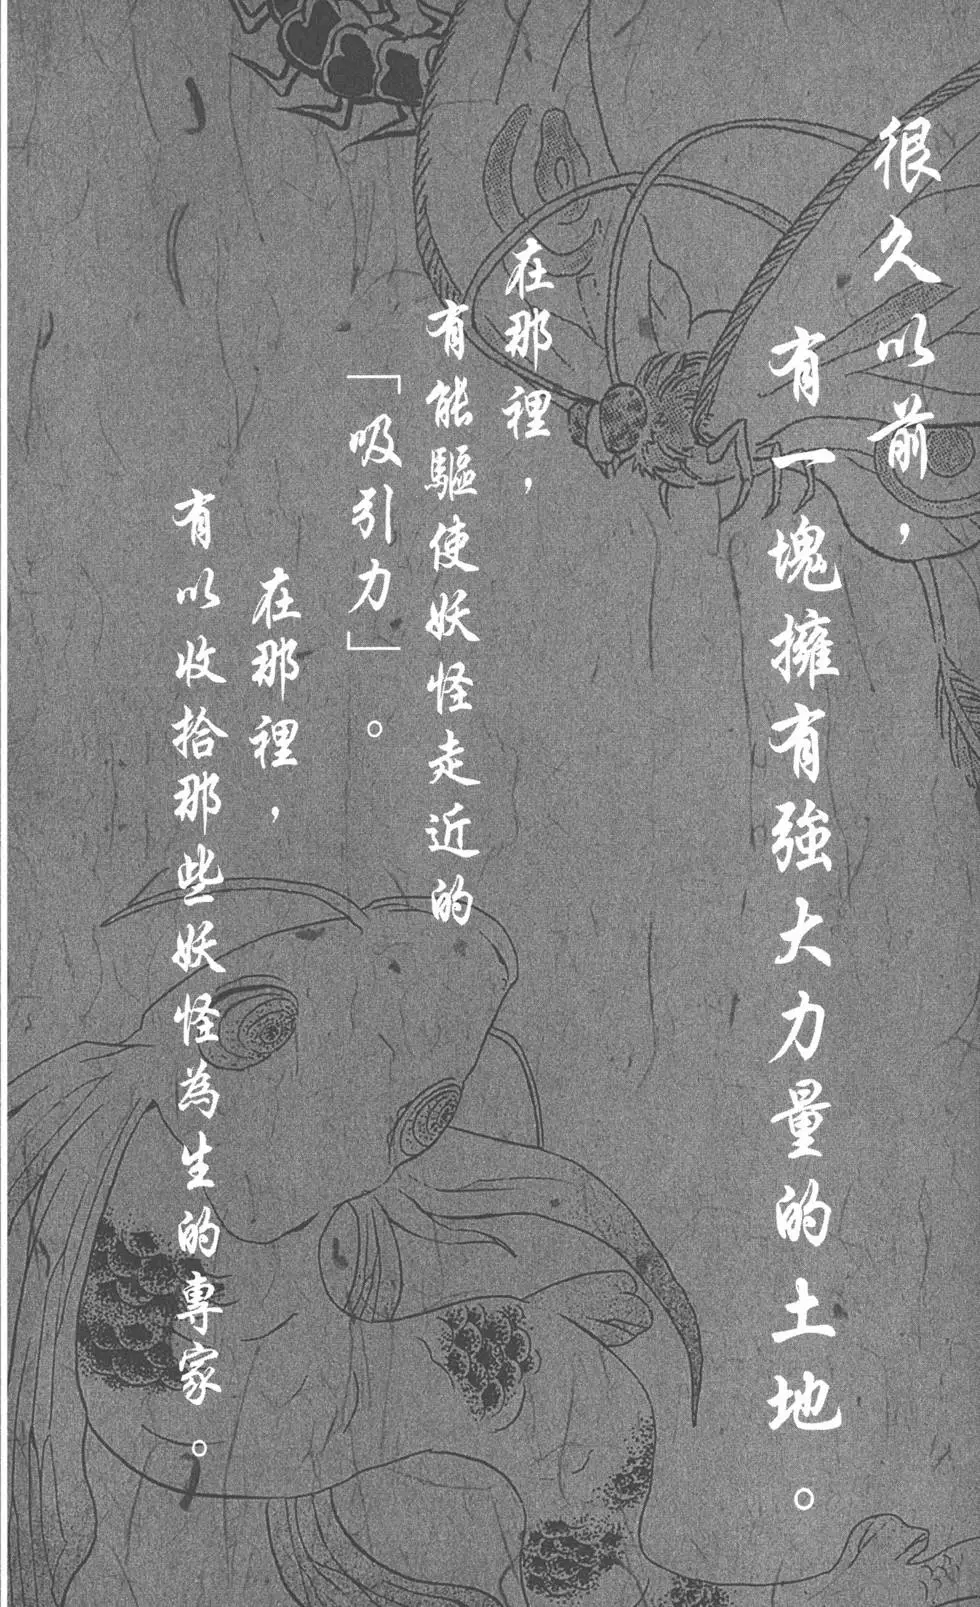 很久以前，
有一塊擁有強大力量的土地。
在那裡，
有能驅使妖怪走近的
「吸引力」。
在那裡，
有以收拾那些妖怪為生的專家。